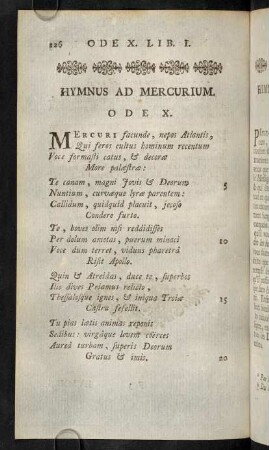 126 ODE X. LIB. I.
HYMNUS AD MERCURIUM.
ODE X.
MERCURI facunde, nepos Atlantis,
Qui feros cultus hominum recentum
Voce formasti catus, & decoræ
More palæstræ:
Te canam, magni Jovis & Deorum 5
Nuntium, curvæque lyræ parentem:
Callidum, quidquid placuit, jocoso
Condere furto.
Te, boves olim nisi reddidisses
Per dolum amotas, puerum minaci 10
Voce dum terret, viduus pharetrâ
Risit Apollo.
Quin & Atreïdas, duce te, superbos
Ilio dives Priamus relicto,
Thessalosque ignes, & iniqua Trojæ 15
Castra fefellit.
Tu pias lætis animas reponis
Sedibus: virgâque levem coërces
Aureâ turbam, superis Deorum
Gratus & imis. 20